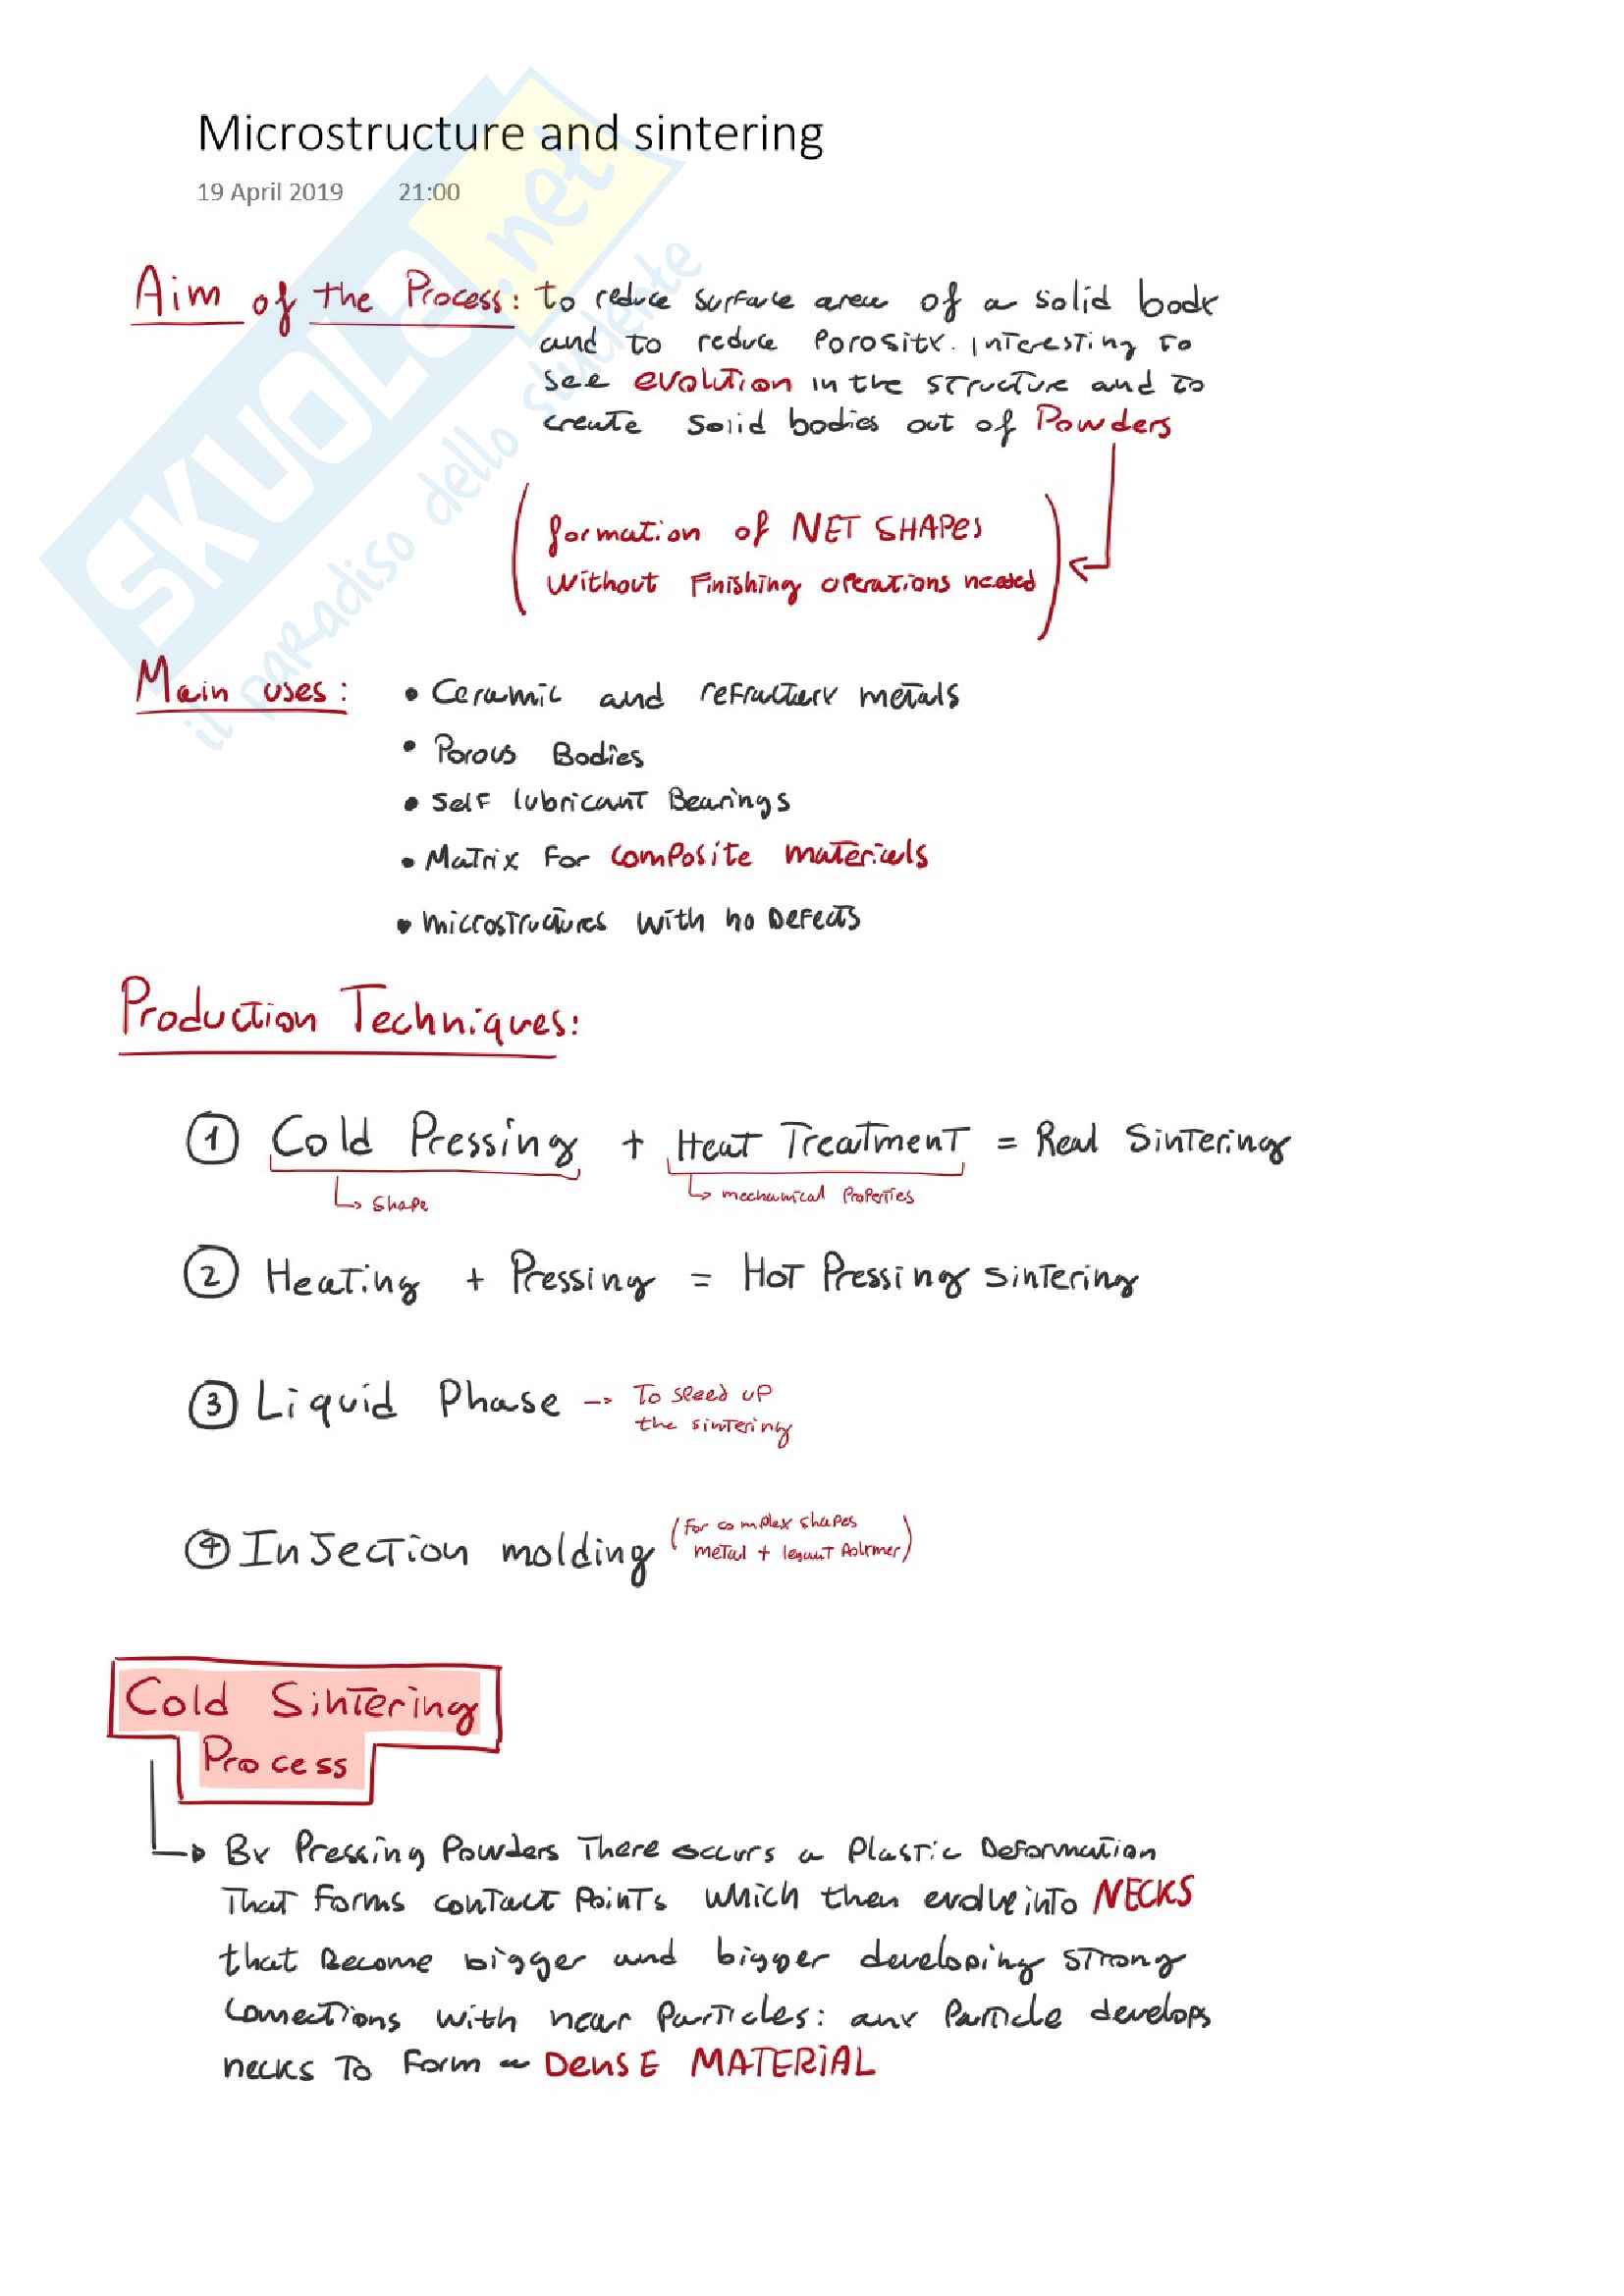 Microstructure and sintering
19 April 2019 21:00
SKUOLA.net
il paradiso dello studente
Aim of the Process: to reduce surface area of a solid body
and to reduce Porosity. Interesting to
see evolution in the structure and to
create solid bodies out of Powders
(formation of NET SHAPES
without Finishing operations needed)
Main uses: • Ceramic and refractory metals
• Porous Bodies
• Self lubricant Bearings
• Matrix For composite materials
• microstructures with no Defects
Production Techniques:
① Cold Pressing + Heat Treatment = Real Sintering
↳ Shape ↳ mechanical Properties
② Heating + Pressing = Hot Pressing sintering
③ Liquid Phase → To speed up
the sintering
④ Injection molding (For complex shapes
metal + legant Polymer)
Cold Sintering
Process
↳ By Pressing Powders There occurs a Plastic Deformation
That Forms contact Points which then evolve into NECKS
that Become bigger and bigger developing strong
Connections with near Particles: any Particle develops
necks To Form a DENSE MATERIAL